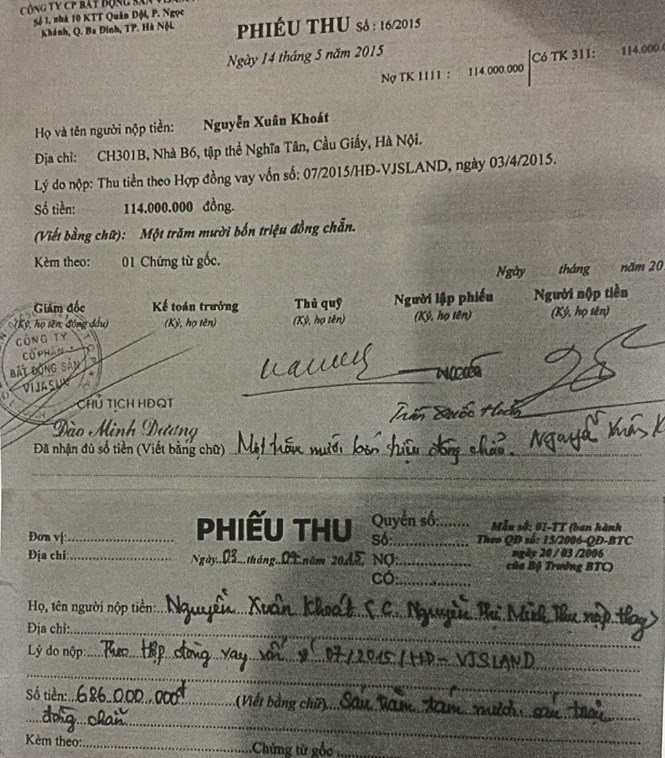 CÔNG TY CP BẤT ĐỘNG SẢN
Số 1, nhà 10 KTT Quân Đội, P. Ngọc
Khánh, Q. Ba Đình, TP. Hà Nội.
PHIẾU THU Số : 16/2015
Ngày 14 tháng 5 năm 2015
Nợ TK 1111 : 114.000.000 Có TK 311: 114.000.
Họ và tên người nộp tiền: Nguyễn Xuân Khoát
Địa chỉ: CH301B, Nhà B6, tập thể Nghĩa Tân, Cầu Giấy, Hà Nội.
Lý do nộp: Thu tiền theo Hợp đồng vay vốn số: 07/2015/HĐ-VJSLAND, ngày 03/4/2015.
Số tiền: 114.000.000 đồng.
(Viết bằng chữ): Một trăm mười bốn triệu đồng chẵn.
Kèm theo: 01 Chứng từ gốc.
Ngày tháng năm 20
Giám đốc Kế toán trưởng Thủ quỹ Người lập phiếu Người nộp tiền
(Ký, họ tên, đóng dấu) (Ký, họ tên) (Ký, họ tên) (Ký, họ tên) (Ký, họ tên)
CÔNG TY
CỔ PHẦN
BẤT ĐỘNG SẢN
VIJASUN
CHỦ TỊCH HĐQT
Trần Quốc
Đào Minh Dương
Đã nhận đủ số tiền (Viết bằng chữ) Một trăm mười bốn triệu đồng chẵn. Nguyễn Xuân K
Đơn vị: PHIẾU THU Quyển số: Mẫu số: 01-TT (ban hành
Số: Theo QĐ số: 15/2006-QĐ-BTC
Địa chỉ: Ngày 03 tháng 04 năm 2015 NỢ: ngày 20/03/2006
CÓ: của Bộ Trưởng BTC)
Họ, tên người nộp tiền: Nguyễn Xuân Khoát (C. Nguyễn Thị Minh Thu nộp thay)
Địa chỉ:
Lý do nộp: Theo Hợp đồng vay vốn số 07/2015/HĐ-VJSLAND
Số tiền: 686.000.000đ (Viết bằng chữ) Sáu trăm tám mươi sáu triệu
đồng chẵn
Kèm theo: Chứng từ gốc